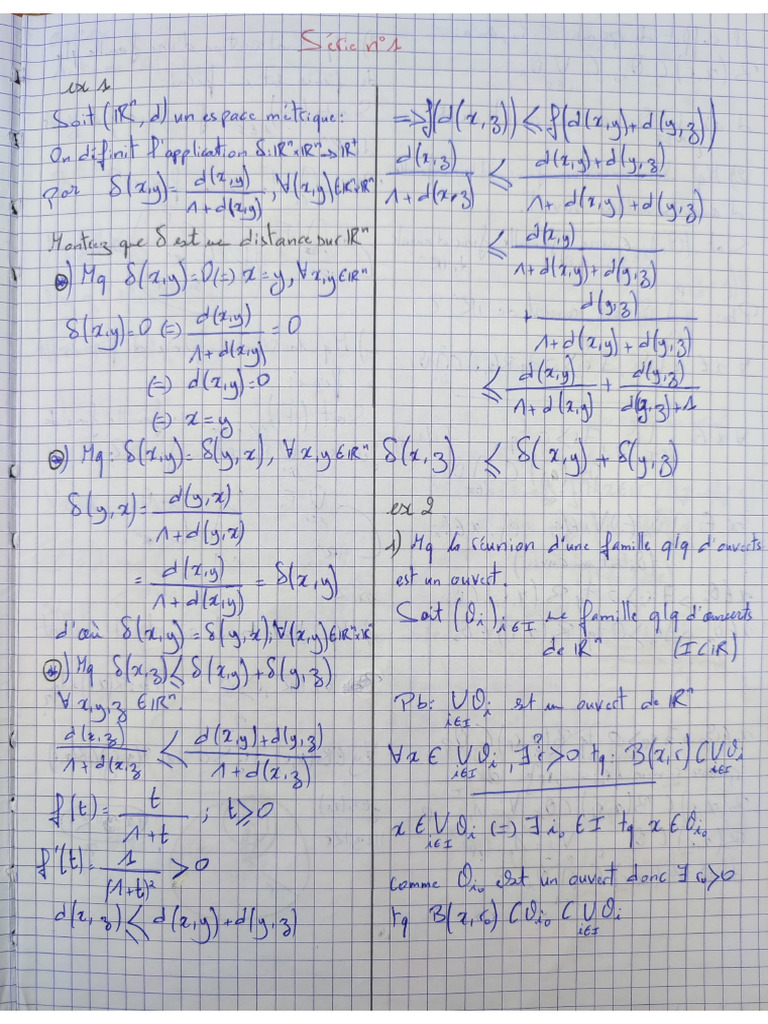 Série n°1
ex 1
Soit (ℝⁿ, d) un espace métrique:
On définit l'application δ: ℝⁿ×ℝⁿ→ℝ⁺
par δ(x,y) = d(x,y) / (1+d(x,y)), ∀(x,y)∈ℝⁿ×ℝⁿ
Montrez que δ est une distance sur ℝⁿ
*) Mq δ(x,y)=0 (=) x=y, ∀x,y∈ℝⁿ
δ(x,y)=0 (=) d(x,y) / (1+d(x,y)) = 0
(=) d(x,y)=0
(=) x=y
*) Mq: δ(x,y)=δ(y,x), ∀x,y∈ℝⁿ
δ(y,x) = d(y,x) / (1+d(y,x))
= d(x,y) / (1+d(x,y)) = δ(x,y)
d'où δ(x,y)=δ(y,x), ∀(x,y)∈ℝⁿ×ℝⁿ
*) Mq δ(x,z)≤δ(x,y)+δ(y,z)
∀x,y,z∈ℝⁿ.
d(x,z) / (1+d(x,z) ≤ (d(x,y)+d(y,z)) / (1+d(x,z))
f(t) = t / (1+t) ; t≥0
f'(t) = 1 / (1+t)² >0
d(x,z) ≤ d(x,y)+d(y,z)
=> f(d(x,z)) ≤ f(d(x,y)+d(y,z))
d(x,z) / (1+d(x,z)) ≤ (d(x,y)+d(y,z)) / (1+d(x,y)+d(y,z))
≤ d(x,y) / (1+d(x,y)+d(y,z))
+ d(y,z) / (1+d(x,y)+d(y,z))
≤ d(x,y) / (1+d(x,y)) + d(y,z) / (d(y,z)+1)
δ(x,z) ≤ δ(x,y)+δ(y,z)
ex 2
1) Mq la réunion d'une famille q/q d'ouverts
est un ouvert.
Soit (θᵢ)ᵢ∈I une famille q/q d'ouverts
de ℝⁿ (I⊂ℝ)
Pb: ∪ᵢ∈I θᵢ est un ouvert de ℝⁿ
∀x ∈ ∪ᵢ∈I θᵢ, ∃? r>0 tq: B(x,r) ⊂ ∪ᵢ∈I θᵢ
x ∈ ∪ᵢ∈I θᵢ (=) ∃ i₀ ∈ I tq x ∈ θᵢ₀
comme θᵢ₀ est un ouvert donc ∃ r₀>0
tq B(x,r₀) ⊂ θᵢ₀ ⊂ ∪ᵢ∈I θᵢ